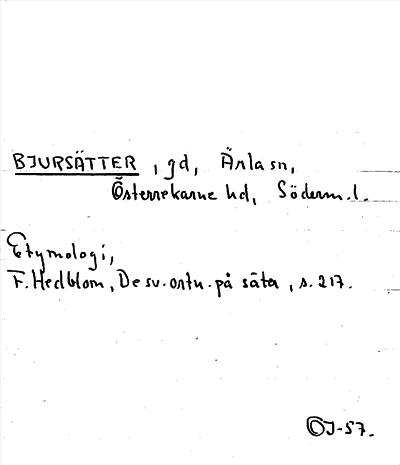 BJURSÄTTER, gd, Ärla sn,
Österrekarne hd, Söderm.l.
Etymologi,
F. Hedblom, De sv. ortn. på säter, s. 217.
OJ-57.